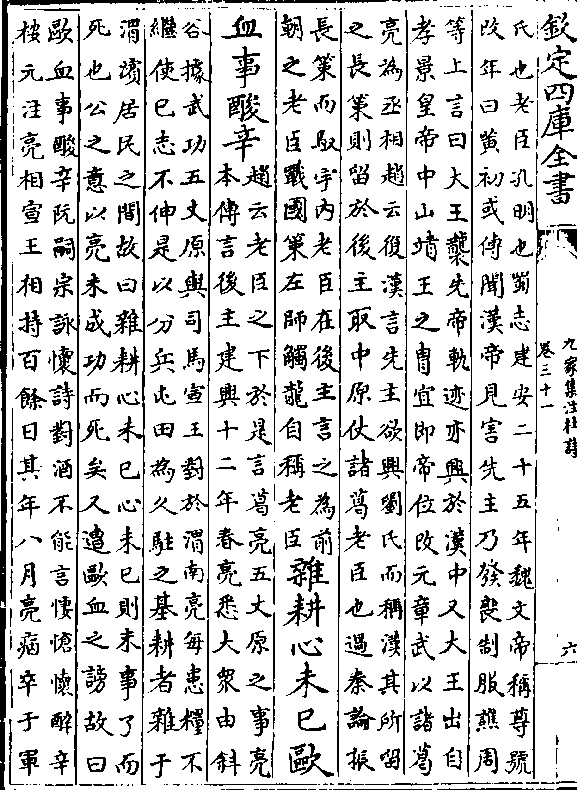 欽定四庫全書
九家集注杜詩
卷三十一
六
氏也老臣孔明也蜀志建安二十五年魏文帝稱尊號
改年曰黃初或傳聞漢帝見害先主乃發喪制服譙周
等上言曰大王襲先帝軌迹亦興於漢中又大王出自
孝景皇帝中山靖王之胄宜即帝位改元章武以諸葛
亮為丞相趙云復漢言先主欲興劉氏而稱漢其所留
之長策則留於後主取中原仗諸葛老臣也過秦論振
長策而馭宇內老臣在後主言之為前
朝之老臣戰國策左師觸龍自稱老臣
雜耕心未已歐
血事酸辛
趙云老臣之下於是言葛亮五丈原之事亮
本傳言後主建興十二年春亮悉大衆由斜
谷據武功五丈原與司馬宣王對於渭南亮每患糧不
繼使已志不伸是以分兵屯田為久駐之基耕者雜于
渭濱居民之間故曰雜耕心未已心未已則未事了而
死也公之意以亮未成功而死矣又遭歐血之謗故曰
歐血事酸辛阮嗣宗詠懷詩對酒不能言悽愴懷酸辛
桉元注亮相宣王相持百餘日其年八月亮病卒于軍